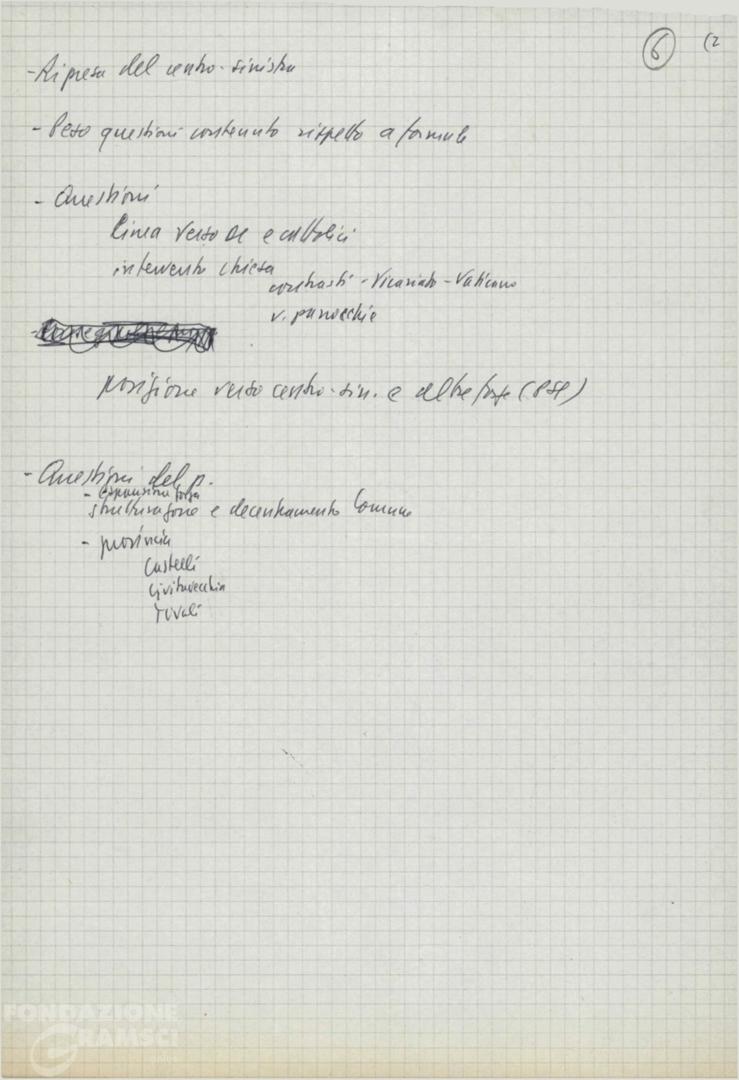 6
(2
- Ripresa del centro-sinistra
- Peso questioni contenuto rispetto a formule
- Questioni
linea verso DC e cattolici
intervento chiesa
contrasti - Vicariato - Vaticano
v. parrocchie
posizione verso centro-sin. e altre forze (PSI)
- Questioni del p.
- espansione forza
strutturazione e decentramento Comune
- provincia
Castelli
Civitavecchia
Tivoli
FONDAZIONE
GRAMSCI